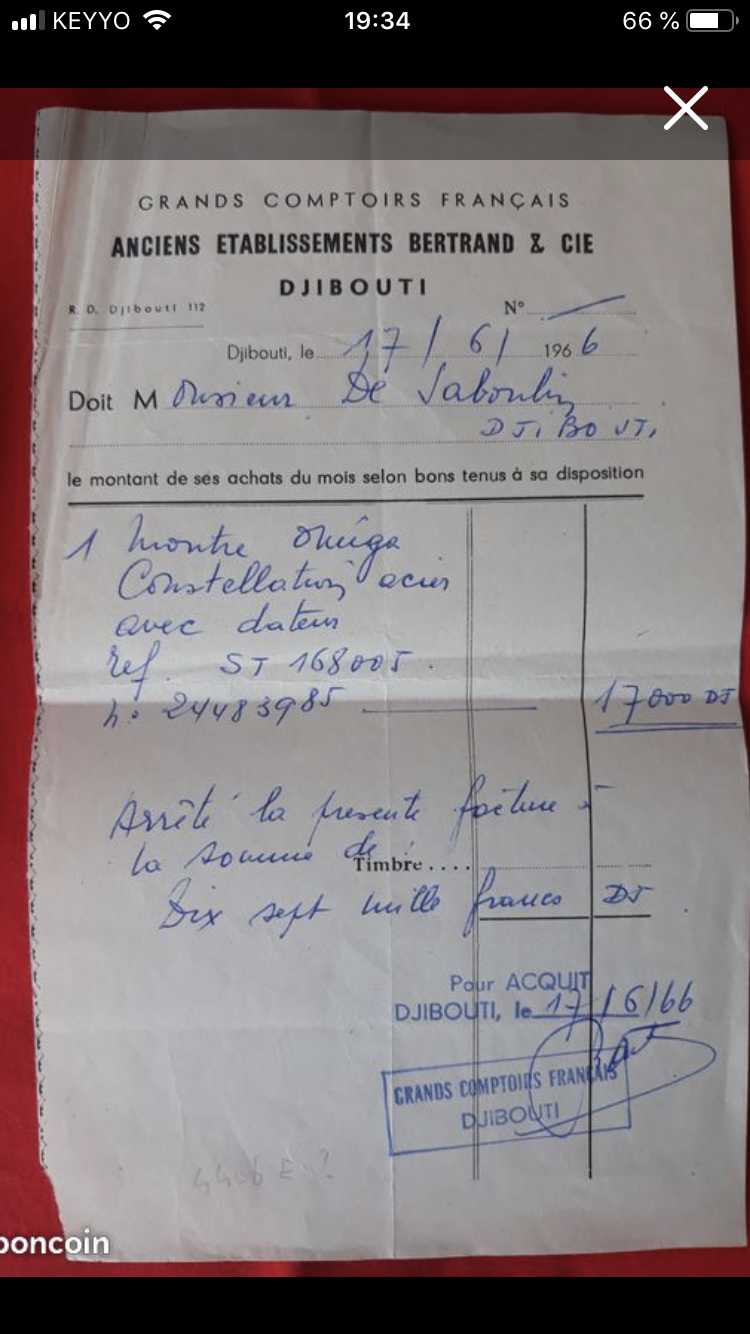 KEYYO 19:34 66 %
GRANDS COMPTOIRS FRANÇAIS
ANCIENS ETABLISSEMENTS BERTRAND & CIE
DJIBOUTI
R. D. Djibouti 112
N°
Djibouti, le 17/6/ 1966
Doit Monsieur De Saboulin
DJIBOUTI
le montant de ses achats du mois selon bons tenus à sa disposition
1 montre Oméga
Constellation acier
avec dateur
ref. ST 168005.
n° 24483985 17000 DJ
Arrêté la presente facture à
la somme de
Timbre ....
Dix sept mille francs DJ
Pour ACQUIT
DJIBOUTI, le 17/6/66
GRANDS COMPTOIRS FRANÇAIS
DJIBOUTI
boncoin